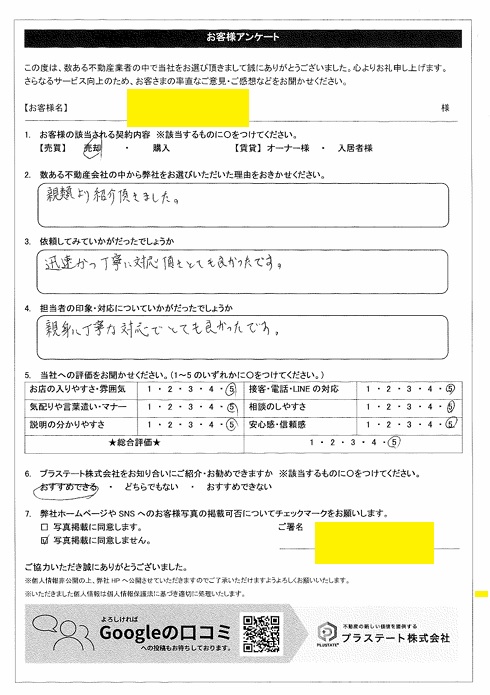 お客様アンケート
この度は、数ある不動産業者の中で当社をお選び頂きまして誠にありがとうございました。心よりお礼申し上げます。
さらなるサービス向上のため、お客さまの率直なご意見・ご感想などをお聞かせください。
【お客様名】 様
1. お客様の該当される契約内容 ※該当するものに〇をつけてください。
【売買】 売却 ・ 購入 【賃貸】 オーナー様 ・ 入居者様
2. 数ある不動産会社の中から弊社をお選びいただいた理由をおきかせください。
親類より紹介頂きました。
3. 依頼してみていかがだったでしょうか
迅速かつ丁寧に対応頂きとても良かったです。
4. 担当者の印象・対応についていかがだったでしょうか
親身に丁寧な対応でとても良かったです。
5. 当社への評価をお聞かせください。(1～5のいずれかに〇をつけてください。)
お店の入りやすさ・雰囲気 1・2・3・4・5 接客・電話・LINEの対応 1・2・3・4・5
気配りや言葉遣い・マナー 1・2・3・4・5 相談のしやすさ 1・2・3・4・5
説明の分かりやすさ 1・2・3・4・5 安心感・信頼感 1・2・3・4・5
★総合評価★ 1・2・3・4・5
6. プラステート株式会社をお知り合いにご紹介・お勧めできますか ※該当するものに〇をつけてください。
おすすめできる ・ どちらでもない ・ おすすめできない
7. 弊社ホームページやSNSへのお客様写真の掲載可否についてチェックマークをお願いします。
□ 写真掲載に同意します。 ご署名
☑ 写真掲載に同意しません。
ご協力いただき誠にありがとうございました。
※個人情報非公開の上、弊社HPへ公開させていただきますのでご了承いただけますようよろしくお願いいたします。
※いただきました個人情報は個人情報保護法に基づき適切に処理いたします。
よろしければ
Googleの口コミ
への投稿もお待ちしております。
PLUSTATE
不動産の新しい価値を提供する
プラステート株式会社